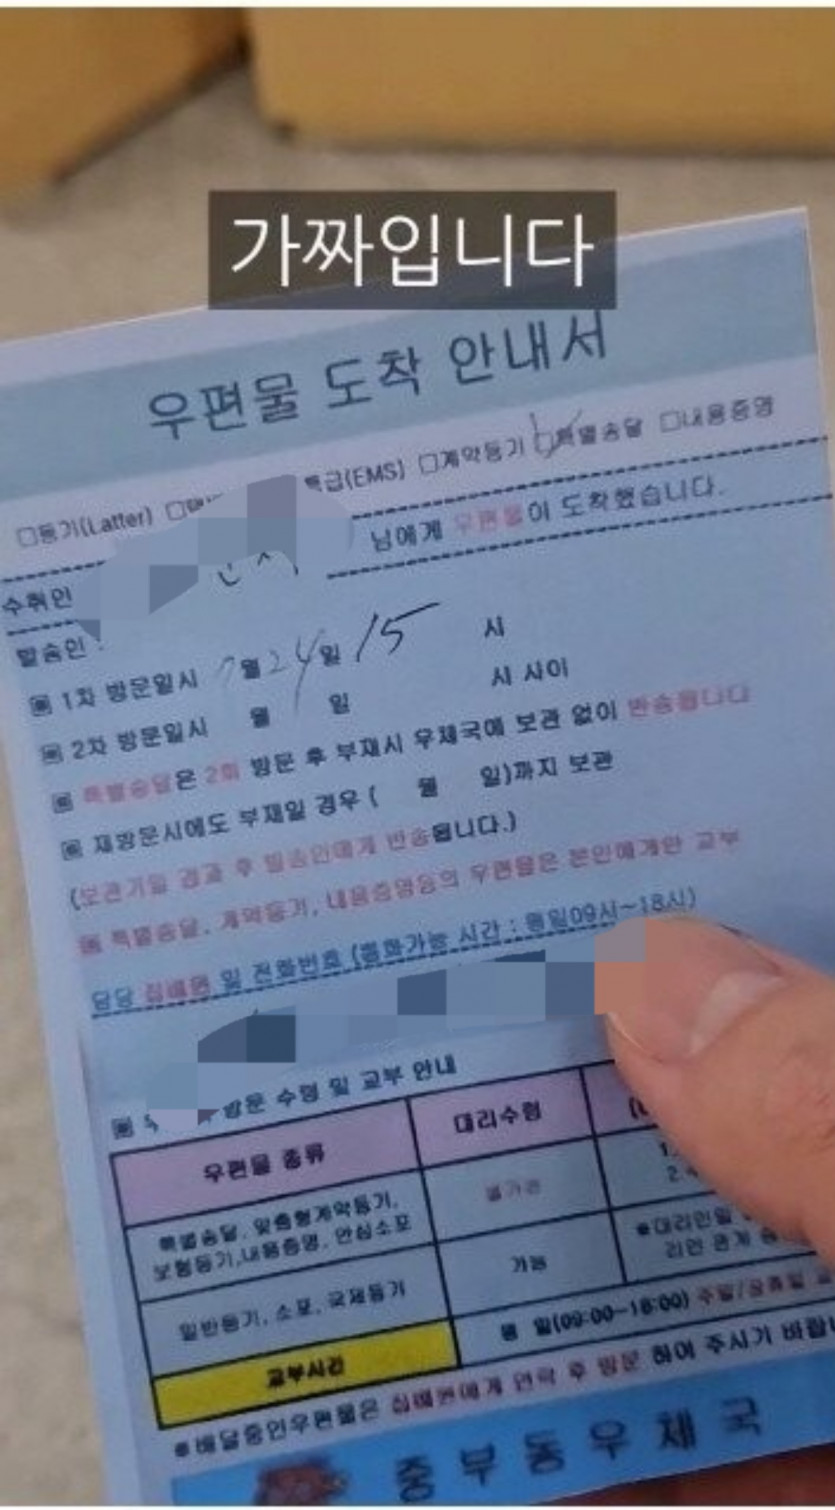 가짜입니다
우편물 도착 안내서
□등기(Latter) 특급(EMS) □계약등기 □특별송달 □내용증명
수취인 님에게 우편물이 도착했습니다.
발송인 :
▣ 1차 방문일시 7월 24일 15 시
▣ 2차 방문일시 월 일 시 사이
▣ 특별송달은 2회 방문 후 부재시 우체국에 보관 없이 반송됩니다
▣ 재방문시에도 부재일 경우 ( 월 일)까지 보관
(보관기일 경과 후 발송인에게 반송됩니다.)
▣ 특별송달, 계약등기, 내용증명등의 우편물은 본인에게만 교부
담당 집배원 및 전화번호 (통화가능 시간 : 평일09시~18시)
▣ 방문 수령 및 교부 안내
우편물 종류 대리수령
특별송달, 맞춤형계약등기,
보험등기,내용증명, 안심소포
불가능
일반등기, 소포, 국제등기
가능
●대리인일
리인 관계
교부시간
월 일(09:00~18:00) 주말/공휴일
●배달중인우편물은 집배원에게 연락 후 방문 하여 주시기 바랍니
중부동우체국